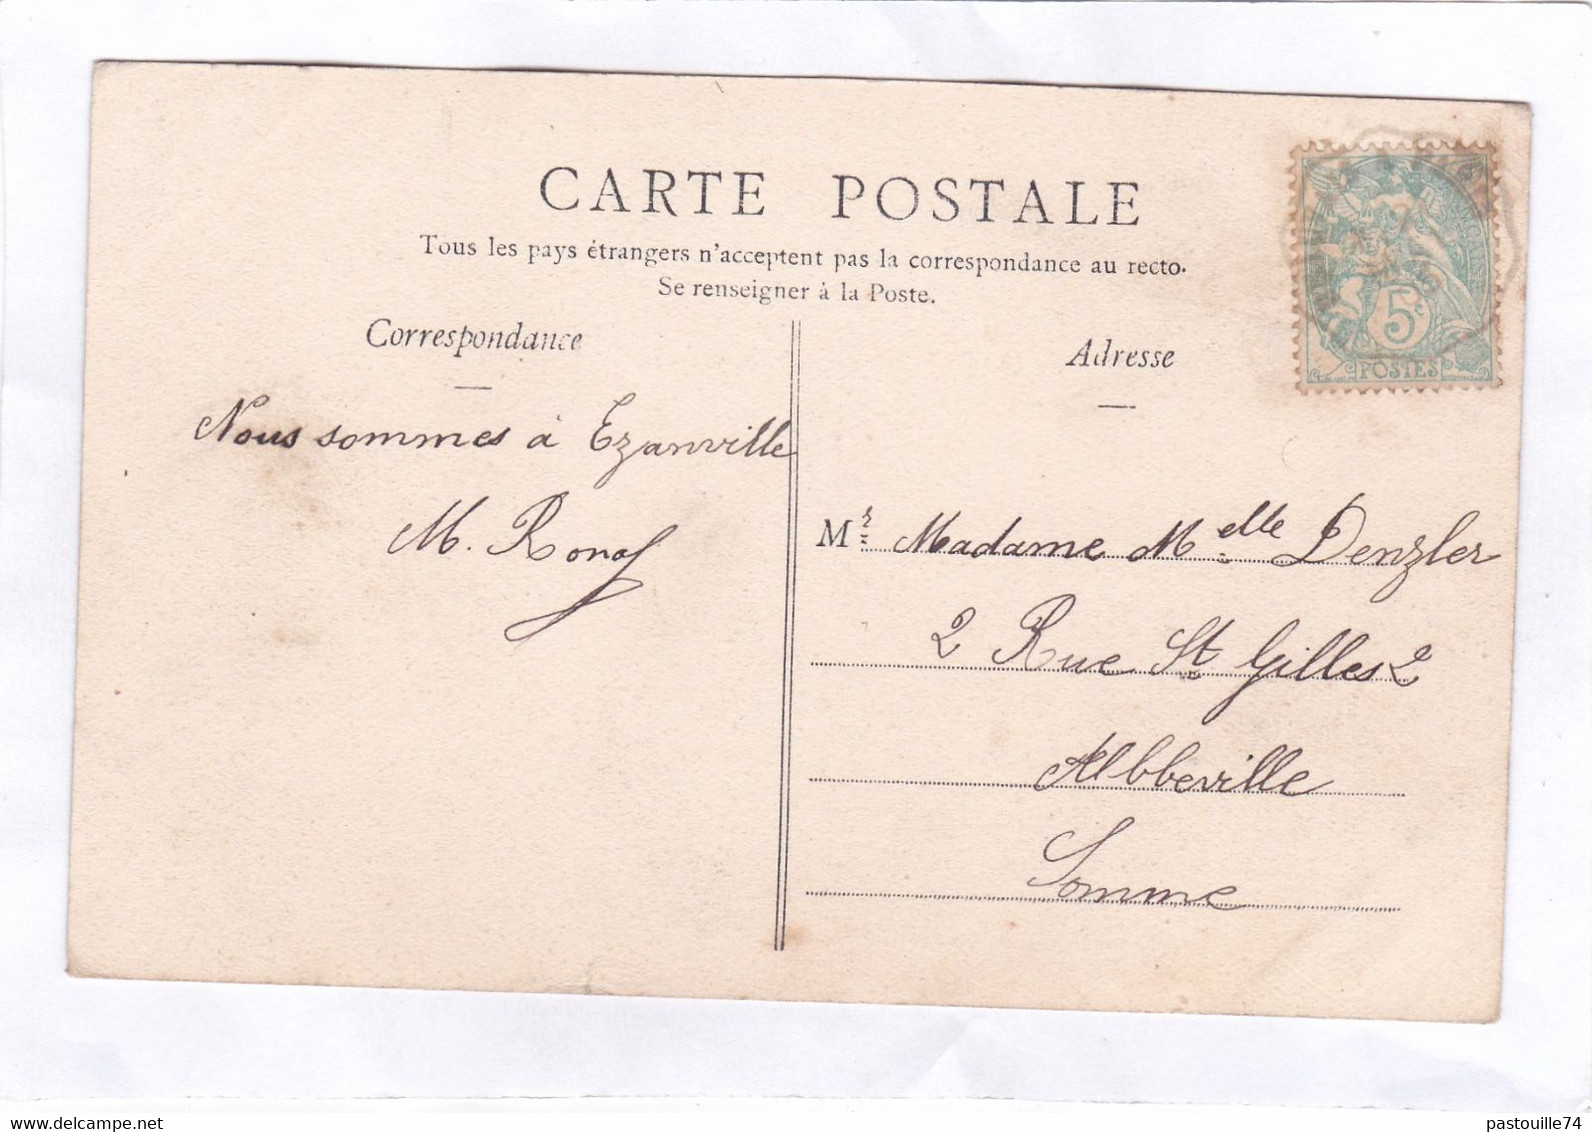 CARTE POSTALE
Tous les pays étrangers n'acceptent pas la correspondance au recto.
Se renseigner à la Poste.
Correspondance
Nous sommes à Ezanville
M.
Adresse
5c
POSTES
Mr Madame Melle Denzler
2 Rue St Gilles 2
Abbeville
Somme
www.delcampe.net
pastouille74